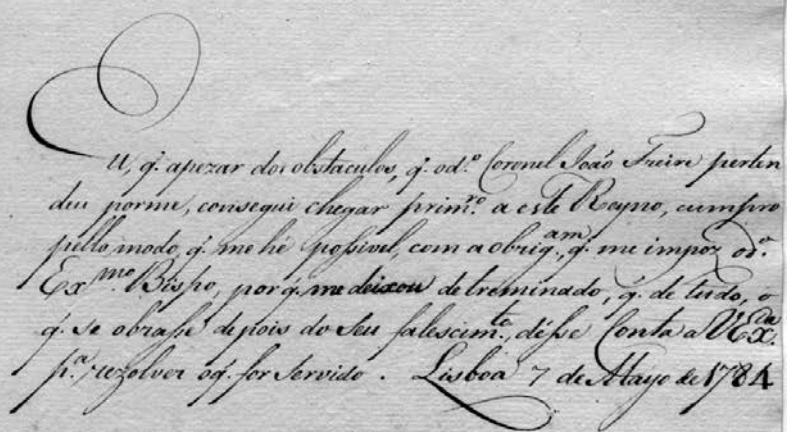 Eu, q̃. apezar dos obstaculos, q̃. o d.º Coronel João Freire perten
deu porme, consegui chegar prim.ro a este Reyno, cumpro
pello modo, q̃. me he possivel, com a obrig.am, q̃. me impoz o d.º
Ex.mo Bispo, por q̃. me deixou detreminado, q̃. de tudo, o
q̃. se obrasse depois do seu falescim.to, désse Conta a V Ex.
p.ª rezolver o q̃. for servido. Lisboa 7 de Mayo de 1784